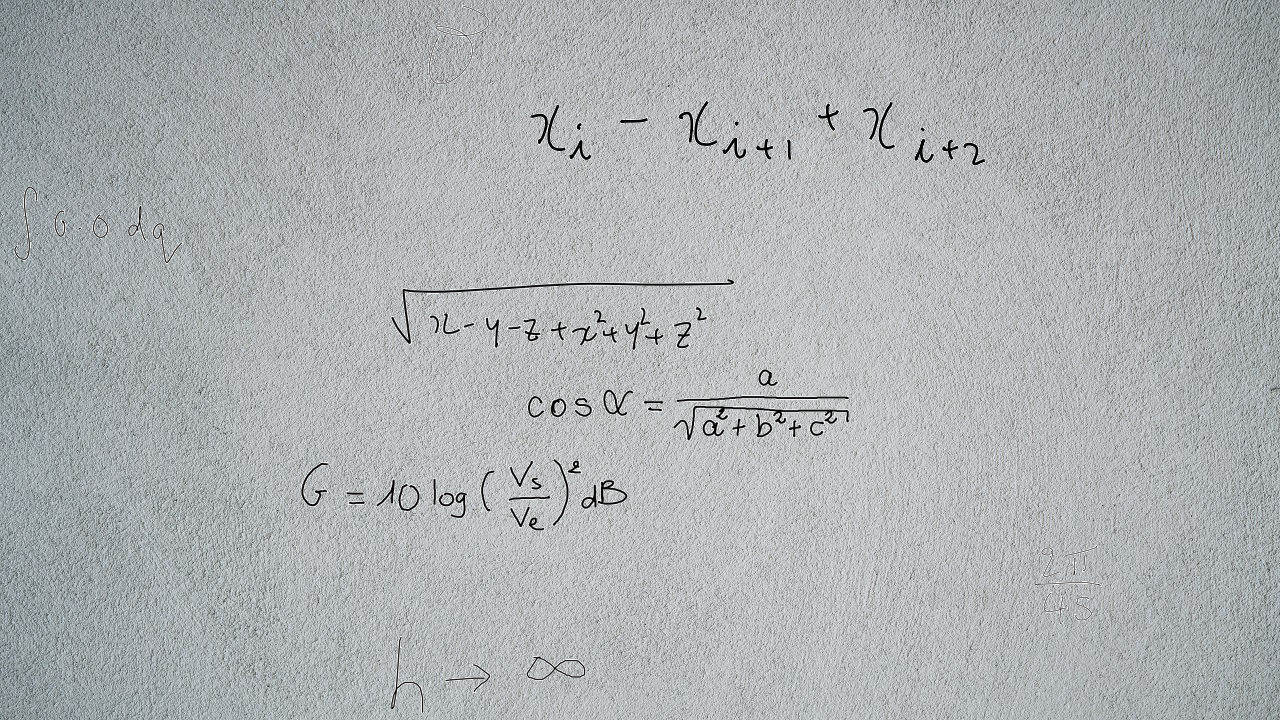 x_i - x_{i+1} + x_{i+2}
∫ G·0 dq
√(x-y-z+x²+y²+z²)
cos α = a / √(a²+b²+c²)
G = 10 log (Vs/Ve)² dB
2π/45
h → ∞